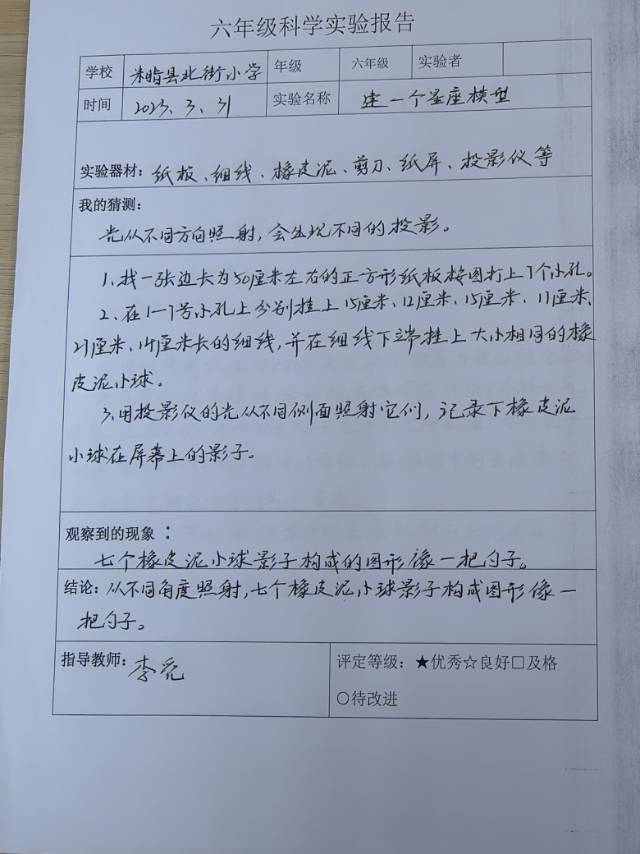 六年级科学实验报告
学校 县北街小学 年级 六年级 实验者
时间 2023、3、31 实验名称 建一个星座模型
实验器材：纸板、细线、橡皮泥、剪刀、纸屏、投影仪等
我的猜测：
光从不同方向照射，会出现不同的投影。
1、找一张边长为50厘米左右的正方形纸板按图打上7个小孔。
2、在1—7号小孔上分别挂上15厘米、12厘米、15厘米、11厘米、
21厘米、14厘米长的细线，并在细线下端挂上大小相同的橡
皮泥小球。
3、用投影仪的光从不同侧面照射它们，记录下橡皮泥
小球在屏幕上的影子。
观察到的现象：
七个橡皮泥小球影子构成的图形像一把勺子。
结论：从不同角度照射，七个橡皮泥小球影子构成图形像一
把勺子。
指导教师：李 评定等级：★优秀☆良好□及格
○待改进